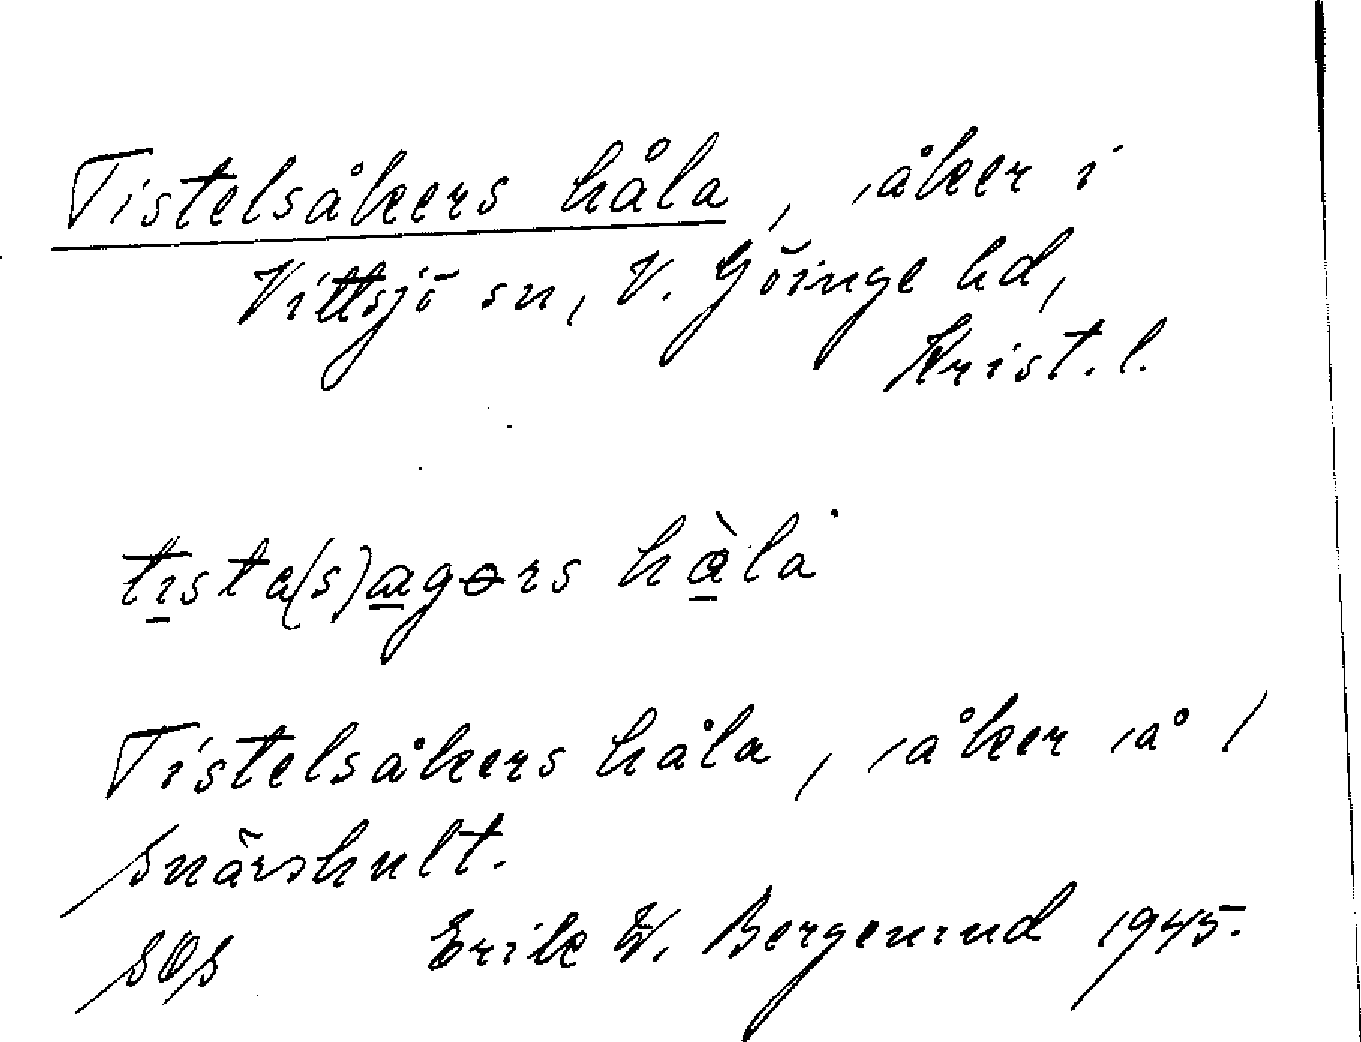 Tistelsåkers håla, åker i
Vittsjö sn, V. Göinge hd,
Krist. l.
tista(s)agərs hàla
Tistelsåkers håla, åker å 1
Snärshult.
SOS Erik W. 1945.